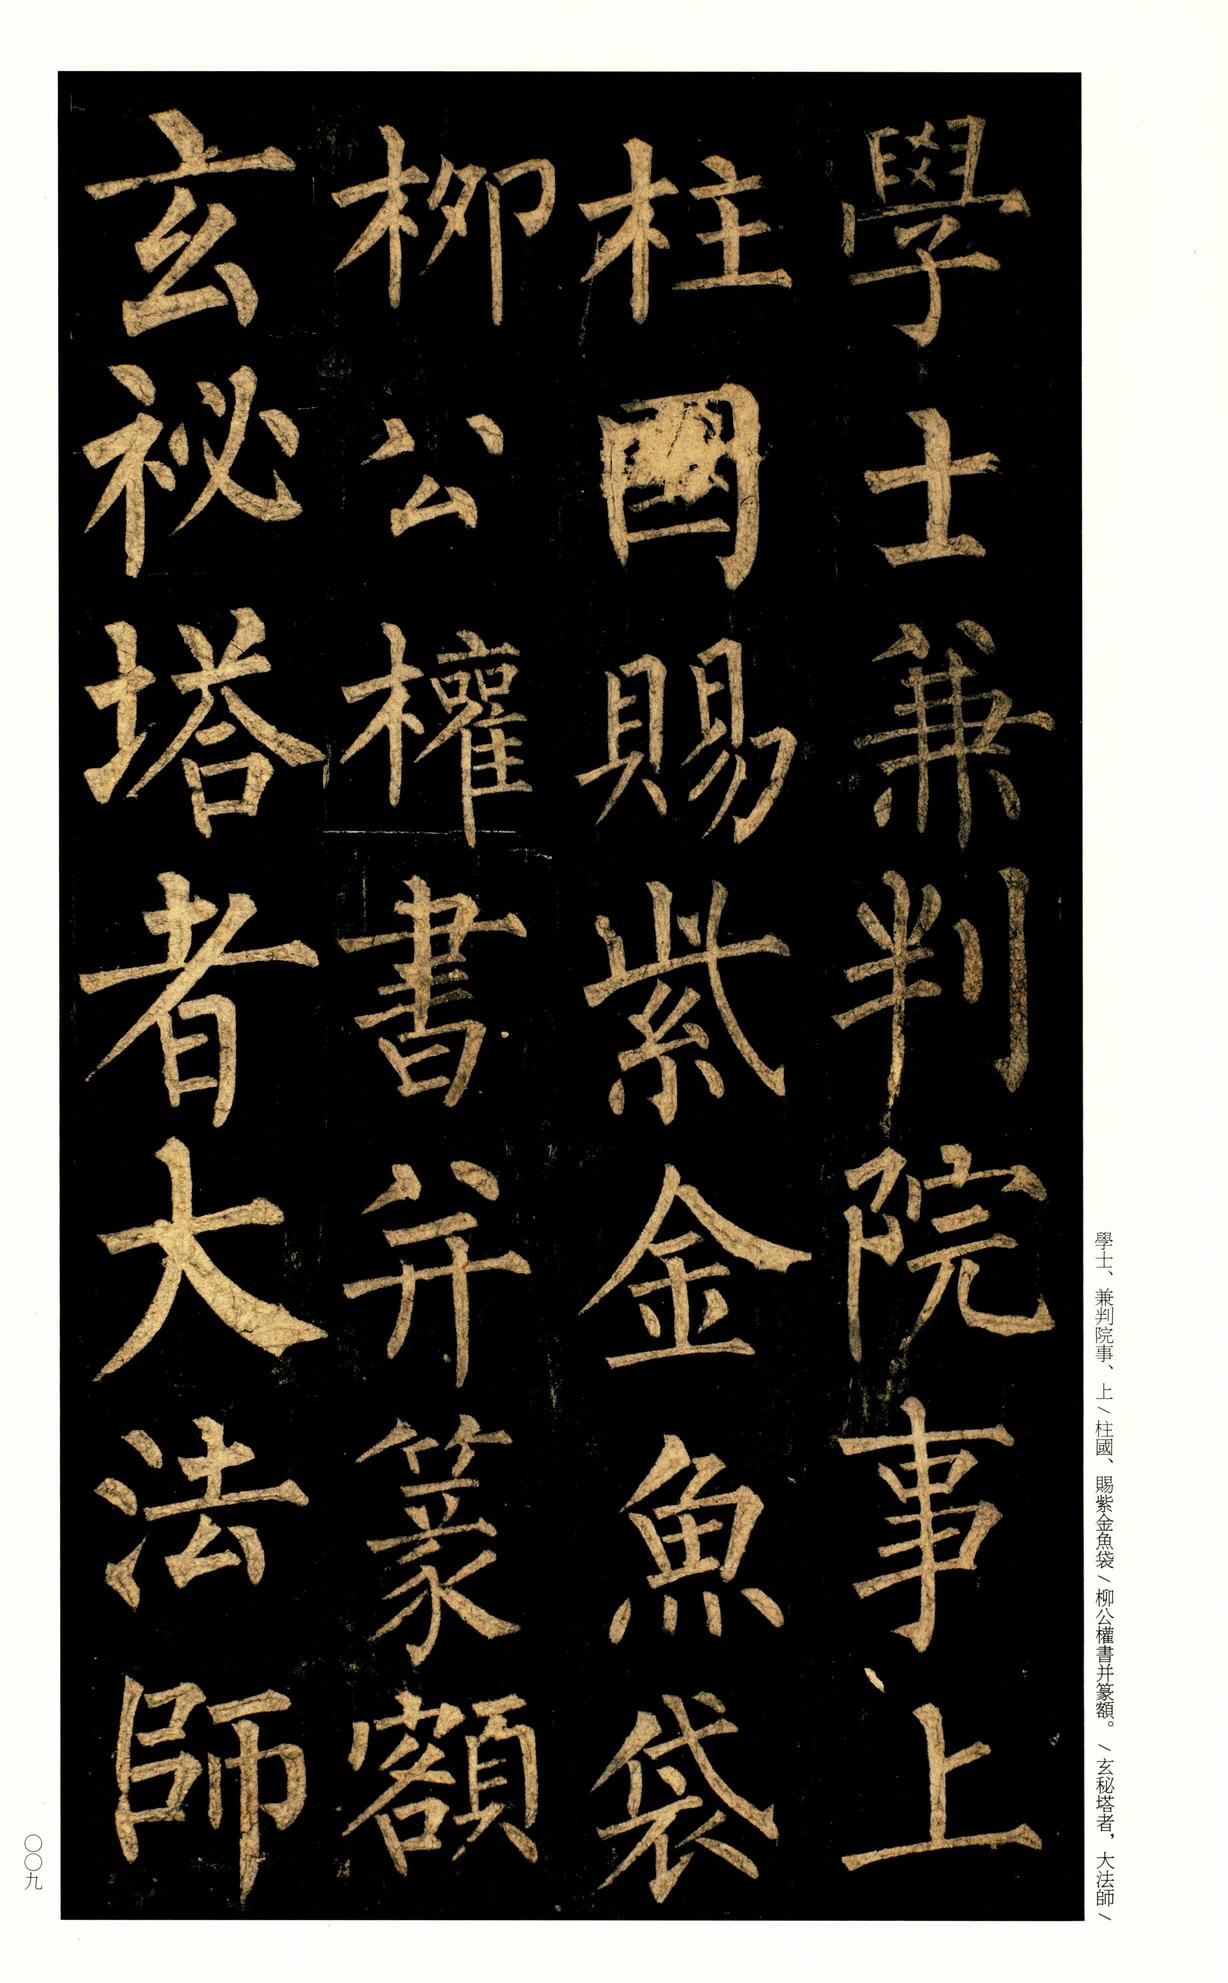 學士兼判院事上
柱國賜紫金魚袋
柳公權書并篆額
玄祕塔者大法師
學士、兼判院事、上/柱國、賜紫金魚袋/柳公權書并篆額。/玄秘塔者，大法師/
〇〇九